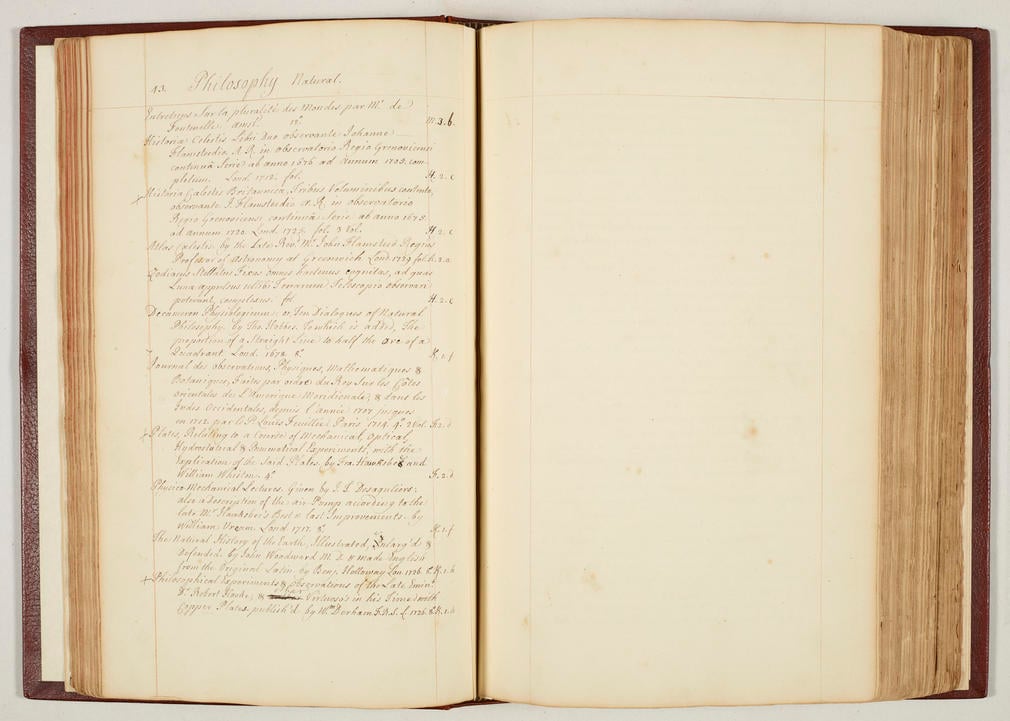 43. Philosophy Natural.
Entretiens Sur la pluralité des Mondes, par Mr. de
Fontenelle. Amst. 12o. M.3.b.
Historiæ Celestis Libri Duo observante Johanne
Flamsteedio A.R. in observatorio Regio Grenovicensi
continuâ Serie ab anno 1676 ad Annum 1705. com-
pletum. Lond. 1712. fol. H.2.c
Historia Cælestis Britannica, Tribus Voluminibus contenta,
observante J. Flamsteedio A.R. in observatorio
Regio Grenovicensi continuâ Serie ab anno 1675.
ad annum 1720. Lond. 1725. fol. 3 Vol. H.2.c
Atlas Cælestis, by the Late Revd. Mr. John Flamsteed Regius
Professor of Astronomy at Greenwich Lond. 1729. fol. h.2.a
Zodiacus Stellatus Fixas omnes hactenus cognitas, ad quas
Lunæ appulsus ullibi Terrarum Telescopio observari
poterunt, complexus. fol. H.2.c
Decameron Physiologicum; or, Ten Dialogues of Natural
Philosophy. by Tho. Hobbes. To which is added, The
proportion of a Straight Line to half the arc of a
Quadrant. Lond. 1678. 8o. K.1.f
Journal des observations, Physiques, Mathematiques &
Botaniques, Faites par ordre du Roy Sur les Côtes
orientales de L'Amerique Meridionale, & dans les
Indes Occidentales, depuis l'année 1707 jusques
en 1712. par le P. Louis Feuillée. Paris. 1714. 4o. 2 Vol. F.2.d
+ Plates, Relating to a Course of Mechanical, Optical,
Hydrostatical & Pneumatical Experiments, with the
Explication of the Said Plates. by Fra. Hawksbee and
William Whiston. 4o. F.2.d
Physico-Mechanical Lectures. Given by J. T. Desaguliers;
also a Description of the air Pump according to the
late Mr. Hawksbee's Best & last Improvements. by
William Vream. Lond. 1717. 8o. K.1.f
The Natural History of the Earth, Illustrated, Enlarg'd &
Defended. by John Woodward M.D. & made English
from the Original Latin. by Benj. Holloway Lon. 1726. 8o. K.1.h
+ Philosophical Experiments & observations of the Late Emint.
Dr. Robert Hooke; & other Virtuoso's in his Time. with
Copper Plates. publish'd by Wm. Derham F.R.S. L. 1726. 8o. K.1.h